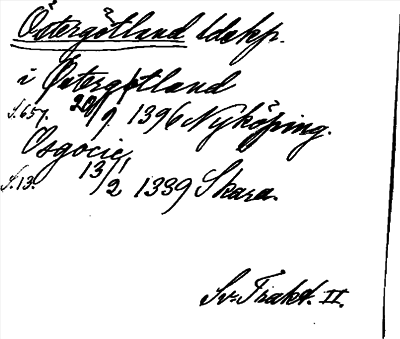 Östergötland ldskp.
i Østergøtland
S. 657. 20/9 1396 Nyköping.
Osgocie,
S. 13. 13/2 1339 Skara.
Sv. Trakt. II.